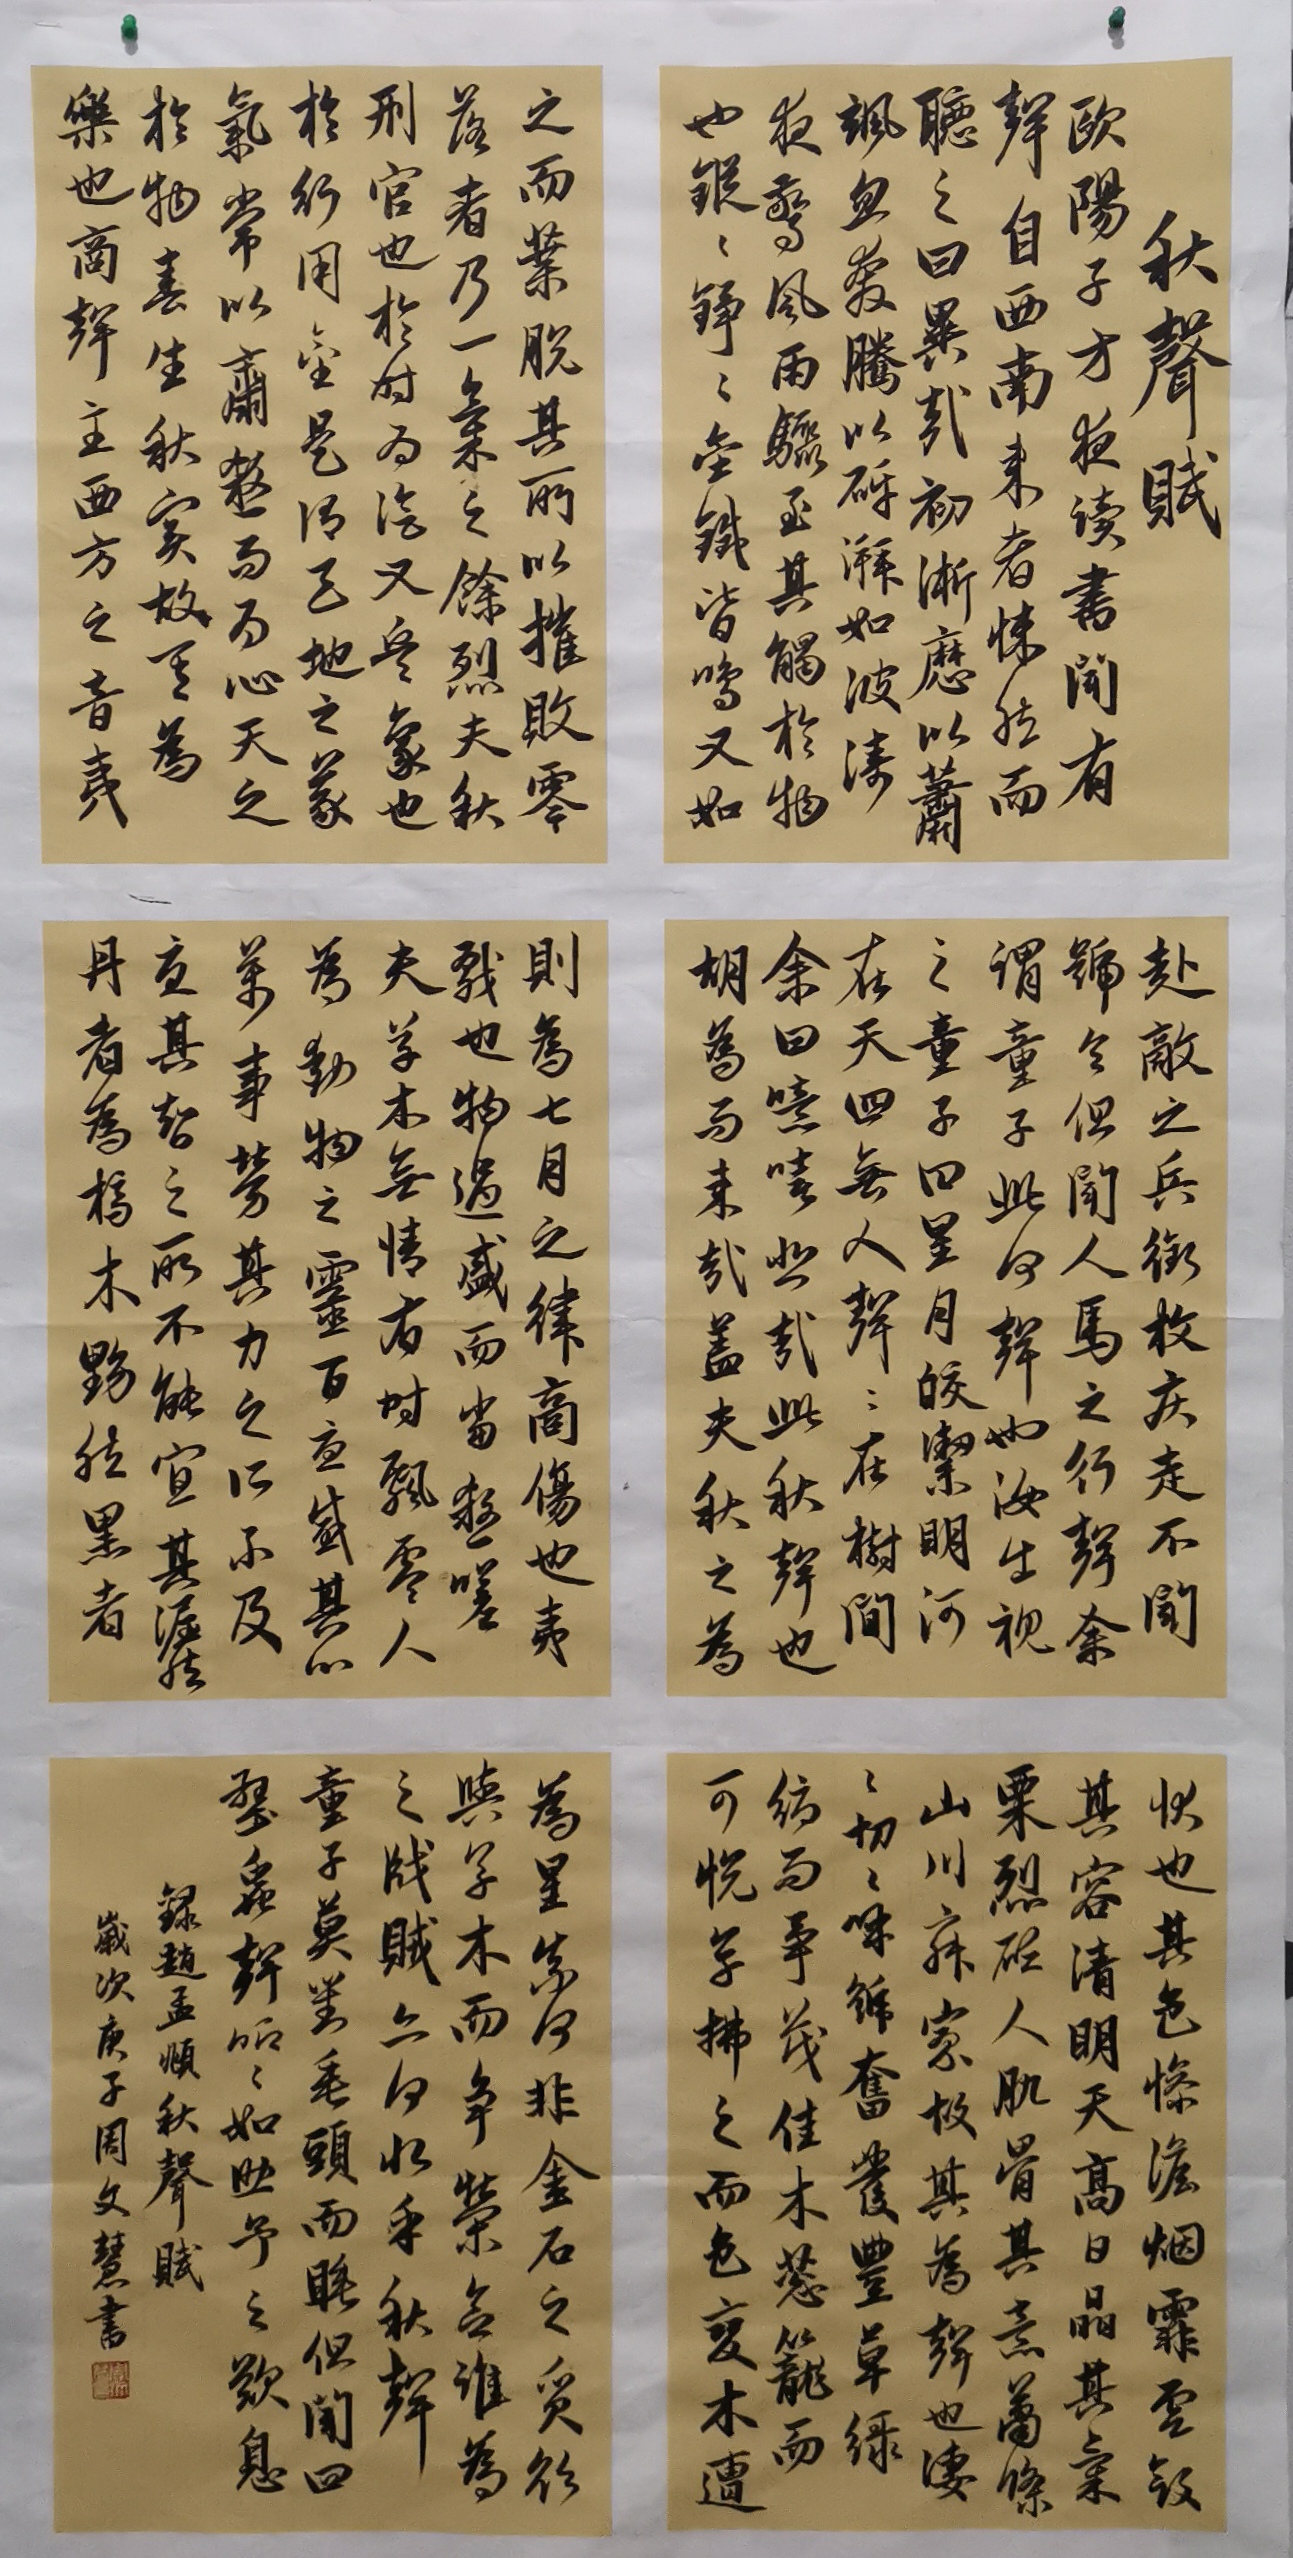 秋聲賦
歐陽子方夜读書聞有
聲自西南来者悚然而
聽之曰異哉初淅瀝以蕭
颯忽奔騰以砰湃如波涛
夜驚風雨驟至其觸於物
也鏦々錚々金鐵皆鳴又如
赴敵之兵銜枚疾走不聞
號令但聞人馬之行聲余
谓童子此何聲也汝出视
之童子曰星月皎潔明河
在天四無人聲々在樹間
余曰噫嘻悲哉此秋聲也
胡為而来哉蓋夫秋之為
状也其色惨澹烟霏雲斂
其容清明天高日晶其氣
栗烈砭人肌骨其意蕭條
山川寂寥故其為聲也淒
々切々呼號奮發豐草绿
缛而争茂佳木蔥籠而
可悦草拂之而色变木遭
之而葉脱其所以摧敗零
落者乃一氣之餘烈夫秋
刑官也於时为陰又兵象也
於行用金是谓天地之義
氣常以肅殺而为心天之
於物春生秋实故其為
樂也商聲主西方之音夷
則為七月之律商傷也夷
戮也物過盛而當殺嗟
夫草木無情有时飄零人
為動物之靈百憂感其心
萬事勞其力之所不及
憂其智之所不能宜其渥然
丹者為槁木黟然黑者
為星奈何非金石之质欲
與草木而争榮念谁為
之戕賊亦何恨乎秋聲
童子莫對垂頭而睡但聞四
壁蟲聲唧々如助予之歎息
録趙孟頫秋聲賦
歲次庚子周文慧書